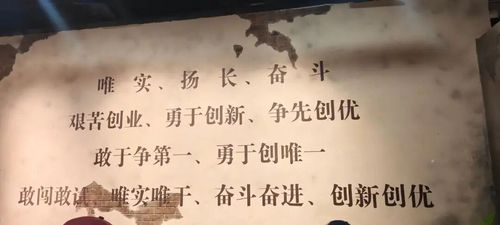 唯实、扬长、奋斗
艰苦创业、勇于创新、争先创优
敢于争第一、勇于创唯一
敢闯敢试、唯实唯干、奋斗奋进、创新创优